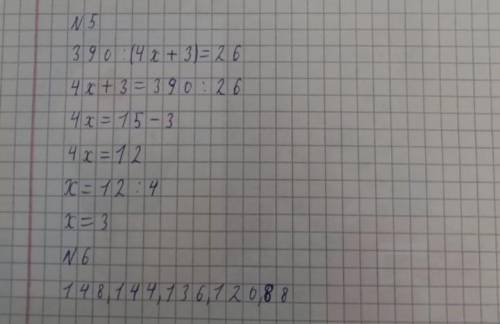 N5
390:(4x+3)=26
4x+3=390:26
4x=15-3
4x=12
x=12:4
x=3
N6
148,144,136,120,88